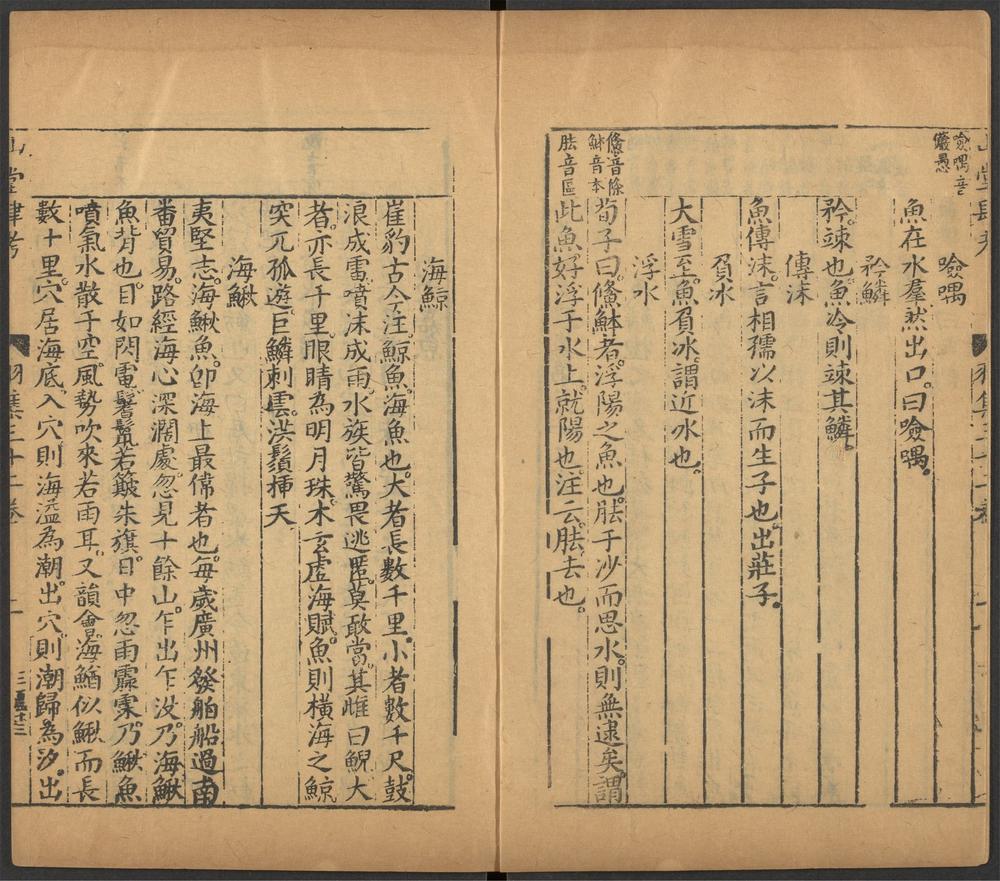 噞喁音
儼愚
噞喁
魚在水羣然出口。曰噞喁。
矜鱗
矜。竦也。魚冷則竦其鱗。
傳沫
魚傳沫。言相孺以沫而生子也。出莊子。
負冰
大雪至。魚負冰。謂近水也。
浮水
鯈音條
䱁音本
胠音區
荀子曰。鯈䱁者。浮陽之魚也。胠于沙而思水。則無逮矣。謂
此魚好浮于水上。就陽也。注云。胠去也。
海鯨
崔豹古今注鯨魚。海魚也。大者長數千里。小者數千尺。鼓
浪成雷。噴沫成雨。水族皆驚畏逃匿。莫敢當。其雌曰鯢大
者。亦長千里。眼睛為明月珠。木玄虛海賦。魚則橫海之鯨
突兀孤遊。巨鱗刺雲。洪鬚挿天
海鰍
夷堅志。海鰍魚。卽海上最偉者也。每歲廣州發舶船過南
番貿易。路經海心深濶處。忽見十餘山。乍出乍沒。乃海鰍
魚背也。目如閃電。鬐鬣若簸朱旗。日中忽雨霡霂。乃鰍魚
噴氣水散于空。風勢吹來若雨耳。又韻會。海鰌似鰍而長
數十里。穴居海底。入穴則海溢為潮。出穴。則潮歸為汐。出
山堂肆考
羽集三十二卷
二